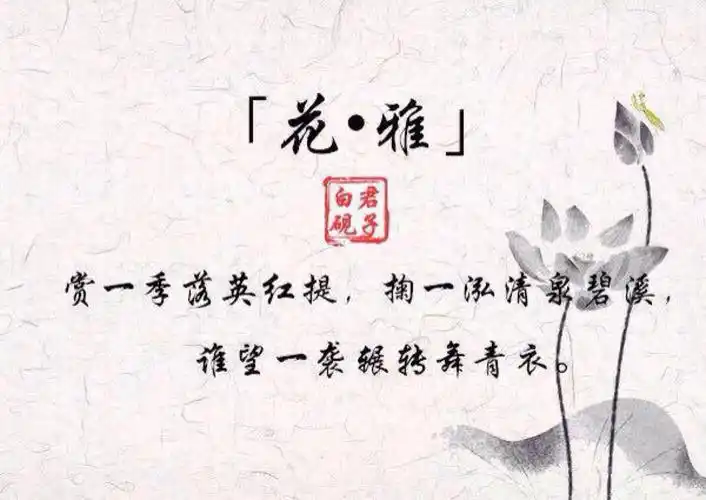 「花•雅」
君子
白砚
赏一季落英红提，掬一泓清泉碧溪，
谁望一袭辗转舞青衣。